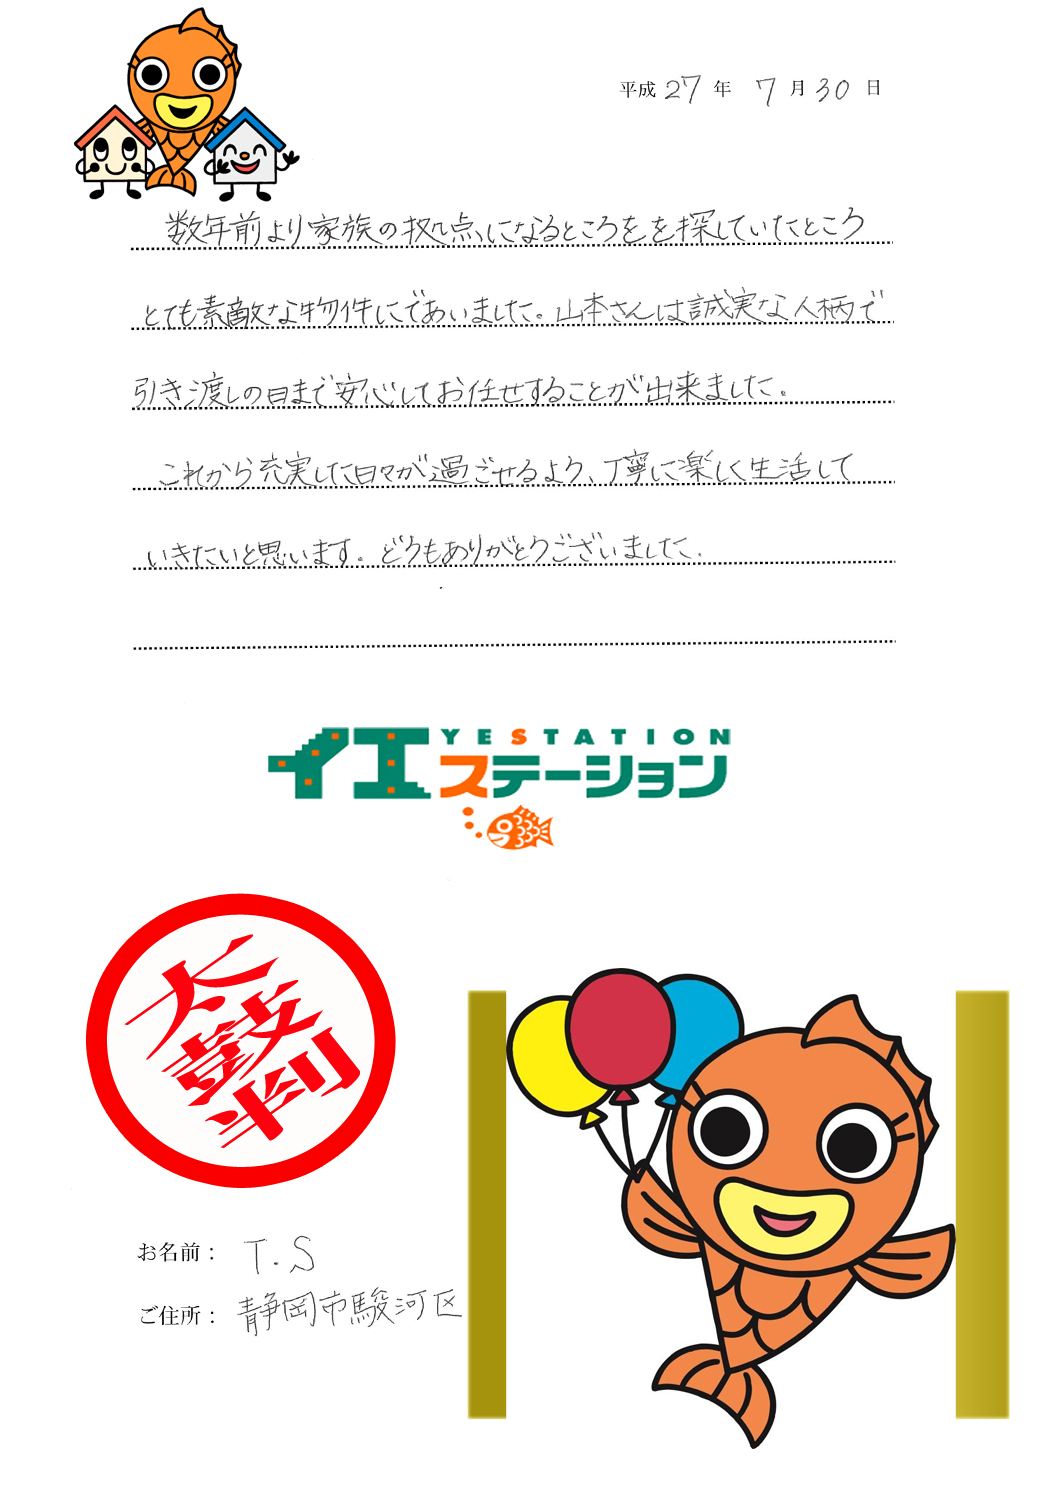 平成 27 年 7 月 30 日
数年前より家族の拠点になるところをを探していたところ
とても素敵な物件にであいました。山本さんは誠実な人柄で
引き渡しの日まで安心してお任せすることが出来ました。
これから充実した日々が過ごせるよう、丁寧に楽しく生活して
いきたいと思います。どうもありがとうございました。
イエステーション
YESTATION
太鼓判
お名前： T.S
ご住所： 静岡市駿河区